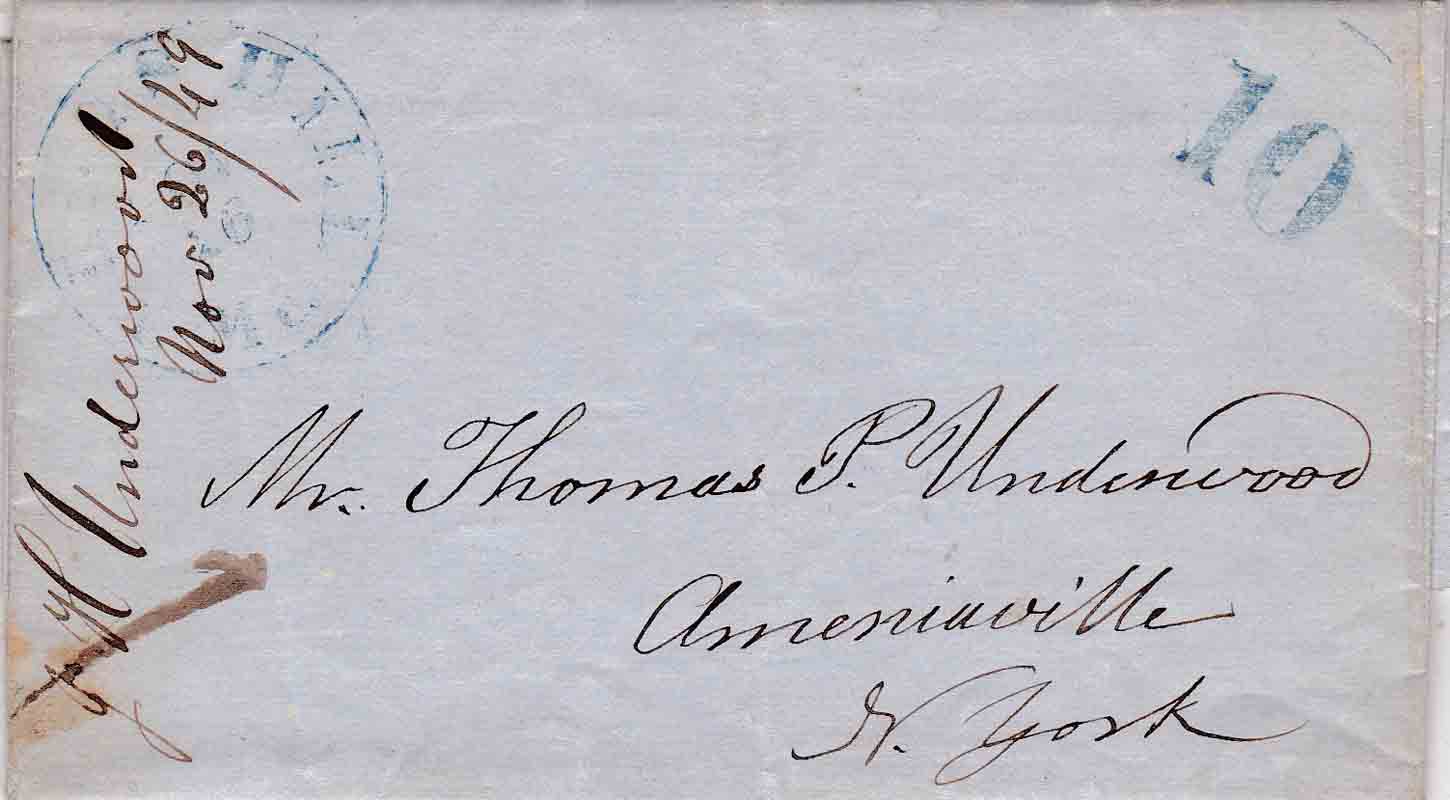 10
Underwood
Nov 26/49
Mr. Thomas P. Underwood
Ameniaville
N. York